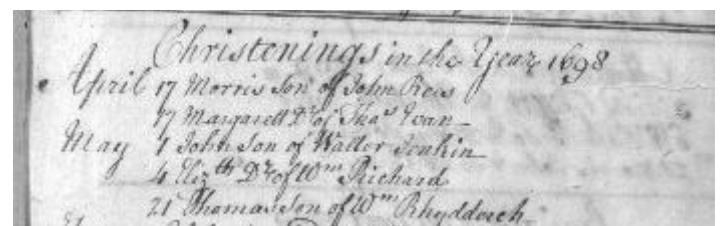 Christenings in the Year 1698
April 17 Morris Son of John Rees
17 Margarett Dr of Thos Evan
May 1 John Son of Walter Jenkin
4 Elizth Dr of Wm Richard
21 Thomas Son of Wm Rhydderch